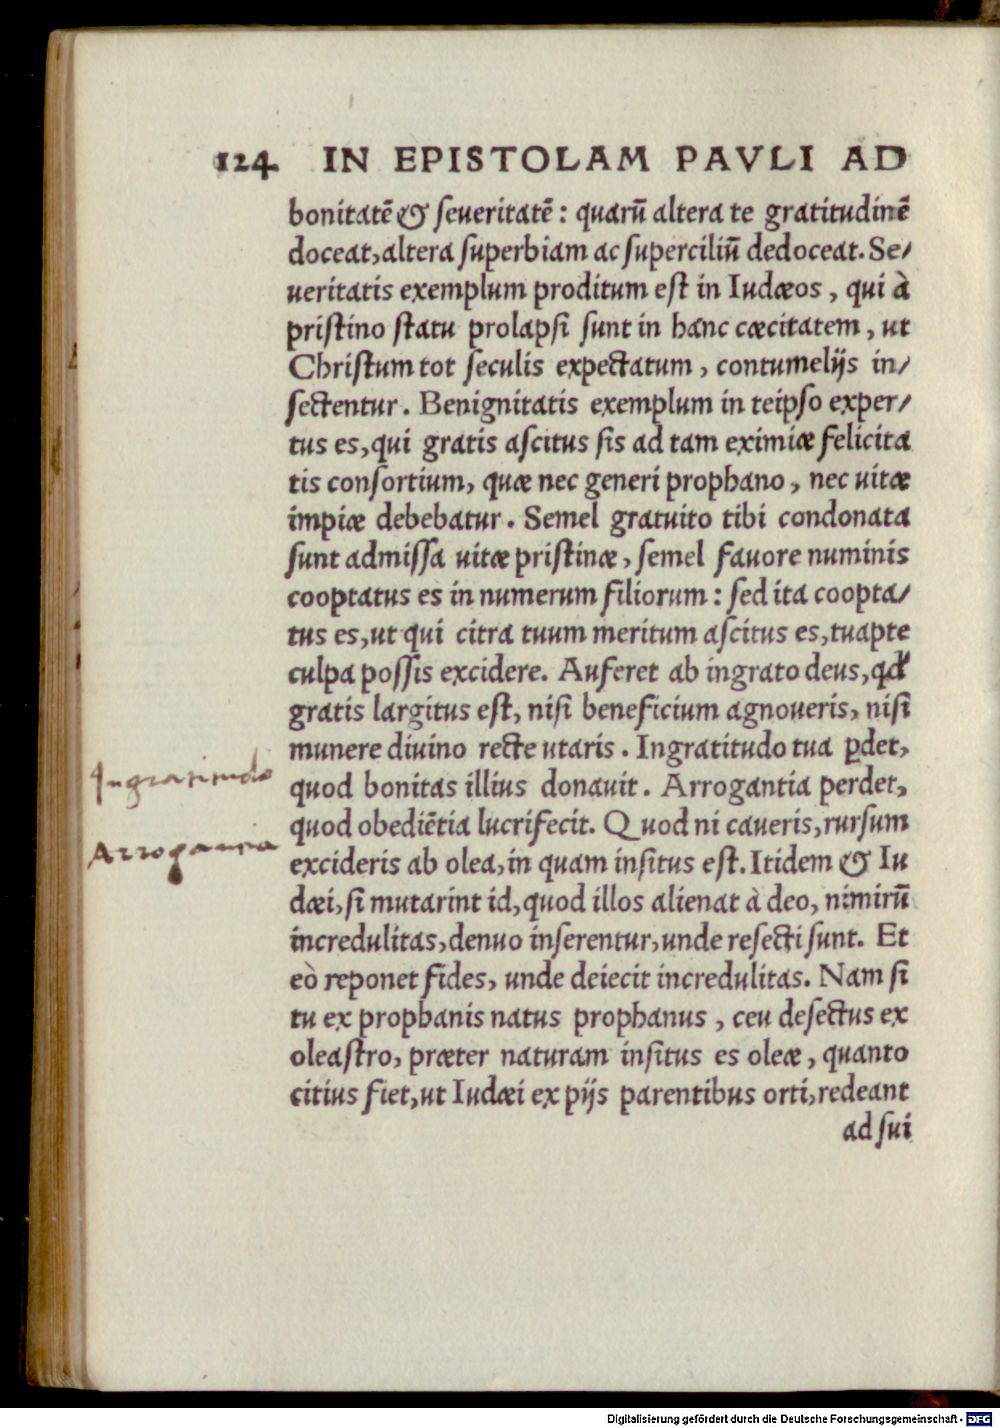 124 IN EPISTOLAM PAVLI AD
bonitatē & ſeueritatē: quarū altera te gratitudinē
doceat, altera ſuperbiam ac ſuperciliū dedoceat. Se/
ueritatis exemplum proditum eſt in Iudæos, qui à
priſtino ſtatu prolapſi ſunt in hanc cæcitatem, ut
Chriſtum tot ſeculis expectatum, contumelijs in/
ſectentur. Benignitatis exemplum in teipſo exper/
tus es, qui gratis aſcitus ſis ad tam eximiæ felicita
tis conſortium, quæ nec generi prophano, nec uitæ
impiæ debebatur. Semel gratuito tibi condonata
ſunt admiſſa uitæ priſtinæ, ſemel fauore numinis
cooptatus es in numerum filiorum: ſed ita coopta/
tus es, ut qui citra tuum meritum aſcitus es, tuapte
culpa poſſis excidere. Auferet ab ingrato deus, qđ
gratis largitus eſt, niſi beneficium agnoueris, niſi
munere diuino recte utaris. Ingratitudo tua ꝑdet,
quod bonitas illius donauit. Arrogantia perdet,
quod obediētia lucrifecit. Quod ni caueris, rurſum
excideris ab olea, in quam inſitus eſt. Itidem & Iu
dæi, ſi mutarint id, quod illos alienat à deo, nimirū
incredulitas, denuo inſerentur, unde reſecti ſunt. Et
eò reponet fides, unde deiecit incredulitas. Nam ſi
tu ex prophanis natus prophanus, ceu deſectus ex
oleaſtro, præter naturam inſitus es oleæ, quanto
citius fiet, ut Iudæi ex pijs parentibus orti, redeant
ad ſui
Ingratitudo
Arrogantia
Digitalisierung gefördert durch die Deutsche Forschungsgemeinschaft - DFG